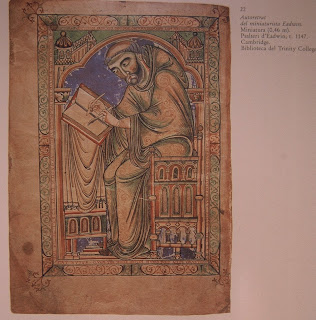 22
Autoretrat
del miniaturista Eadwin.
Miniatura (0,46 m).
Psalteri d'Eadwin, c. 1147.
Cambridge,
Biblioteca del Trinity College